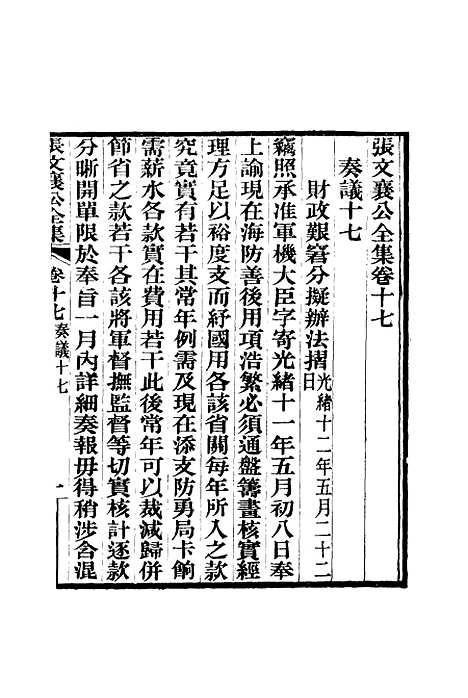 張文襄公全集卷十七
奏議十七
財政艱窘分擬辦法摺光緒十二年五月二十二日
竊照承准軍機大臣字寄光緒十一年五月初八日奉
上諭現在海防善後用項浩繁必須通盤籌畫核實經
理方足以裕度支而紓國用各該省關每年所入之款
究竟實有若干其常年例需及現在添支防勇局卡餉
需薪水各款實在費用若干此後常年可以裁減歸併
節省之款若干各該將軍督撫監督等切實核計逐款
分晰開單限於奉旨一月內詳細奏報毋得稍涉含混
張文襄公全集 卷十七 奏議十七 一